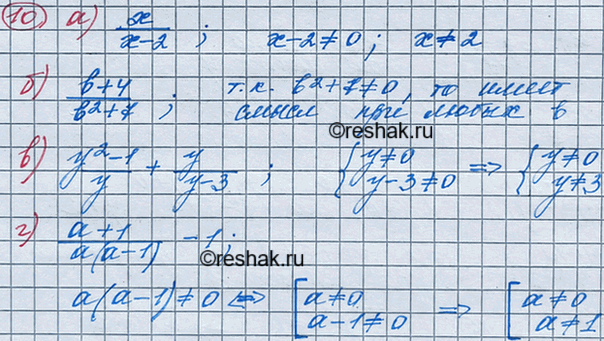 10. а) x/(x-2) ; x-2≠0 ; x≠2
б) (b+4)/(b²+7) ; т.к. b²+7≠0, то имеет
смысл при любых b
©reshak.ru
в) (y²-1)/y + y/(y-3) ; {y≠0 y-3≠0 => {y≠0 y≠3
г) (a+1)/(a(a-1)) -1 ;
©reshak.ru
a(a-1)≠0 <=> [a≠0 a-1≠0 => [a≠0 a≠1